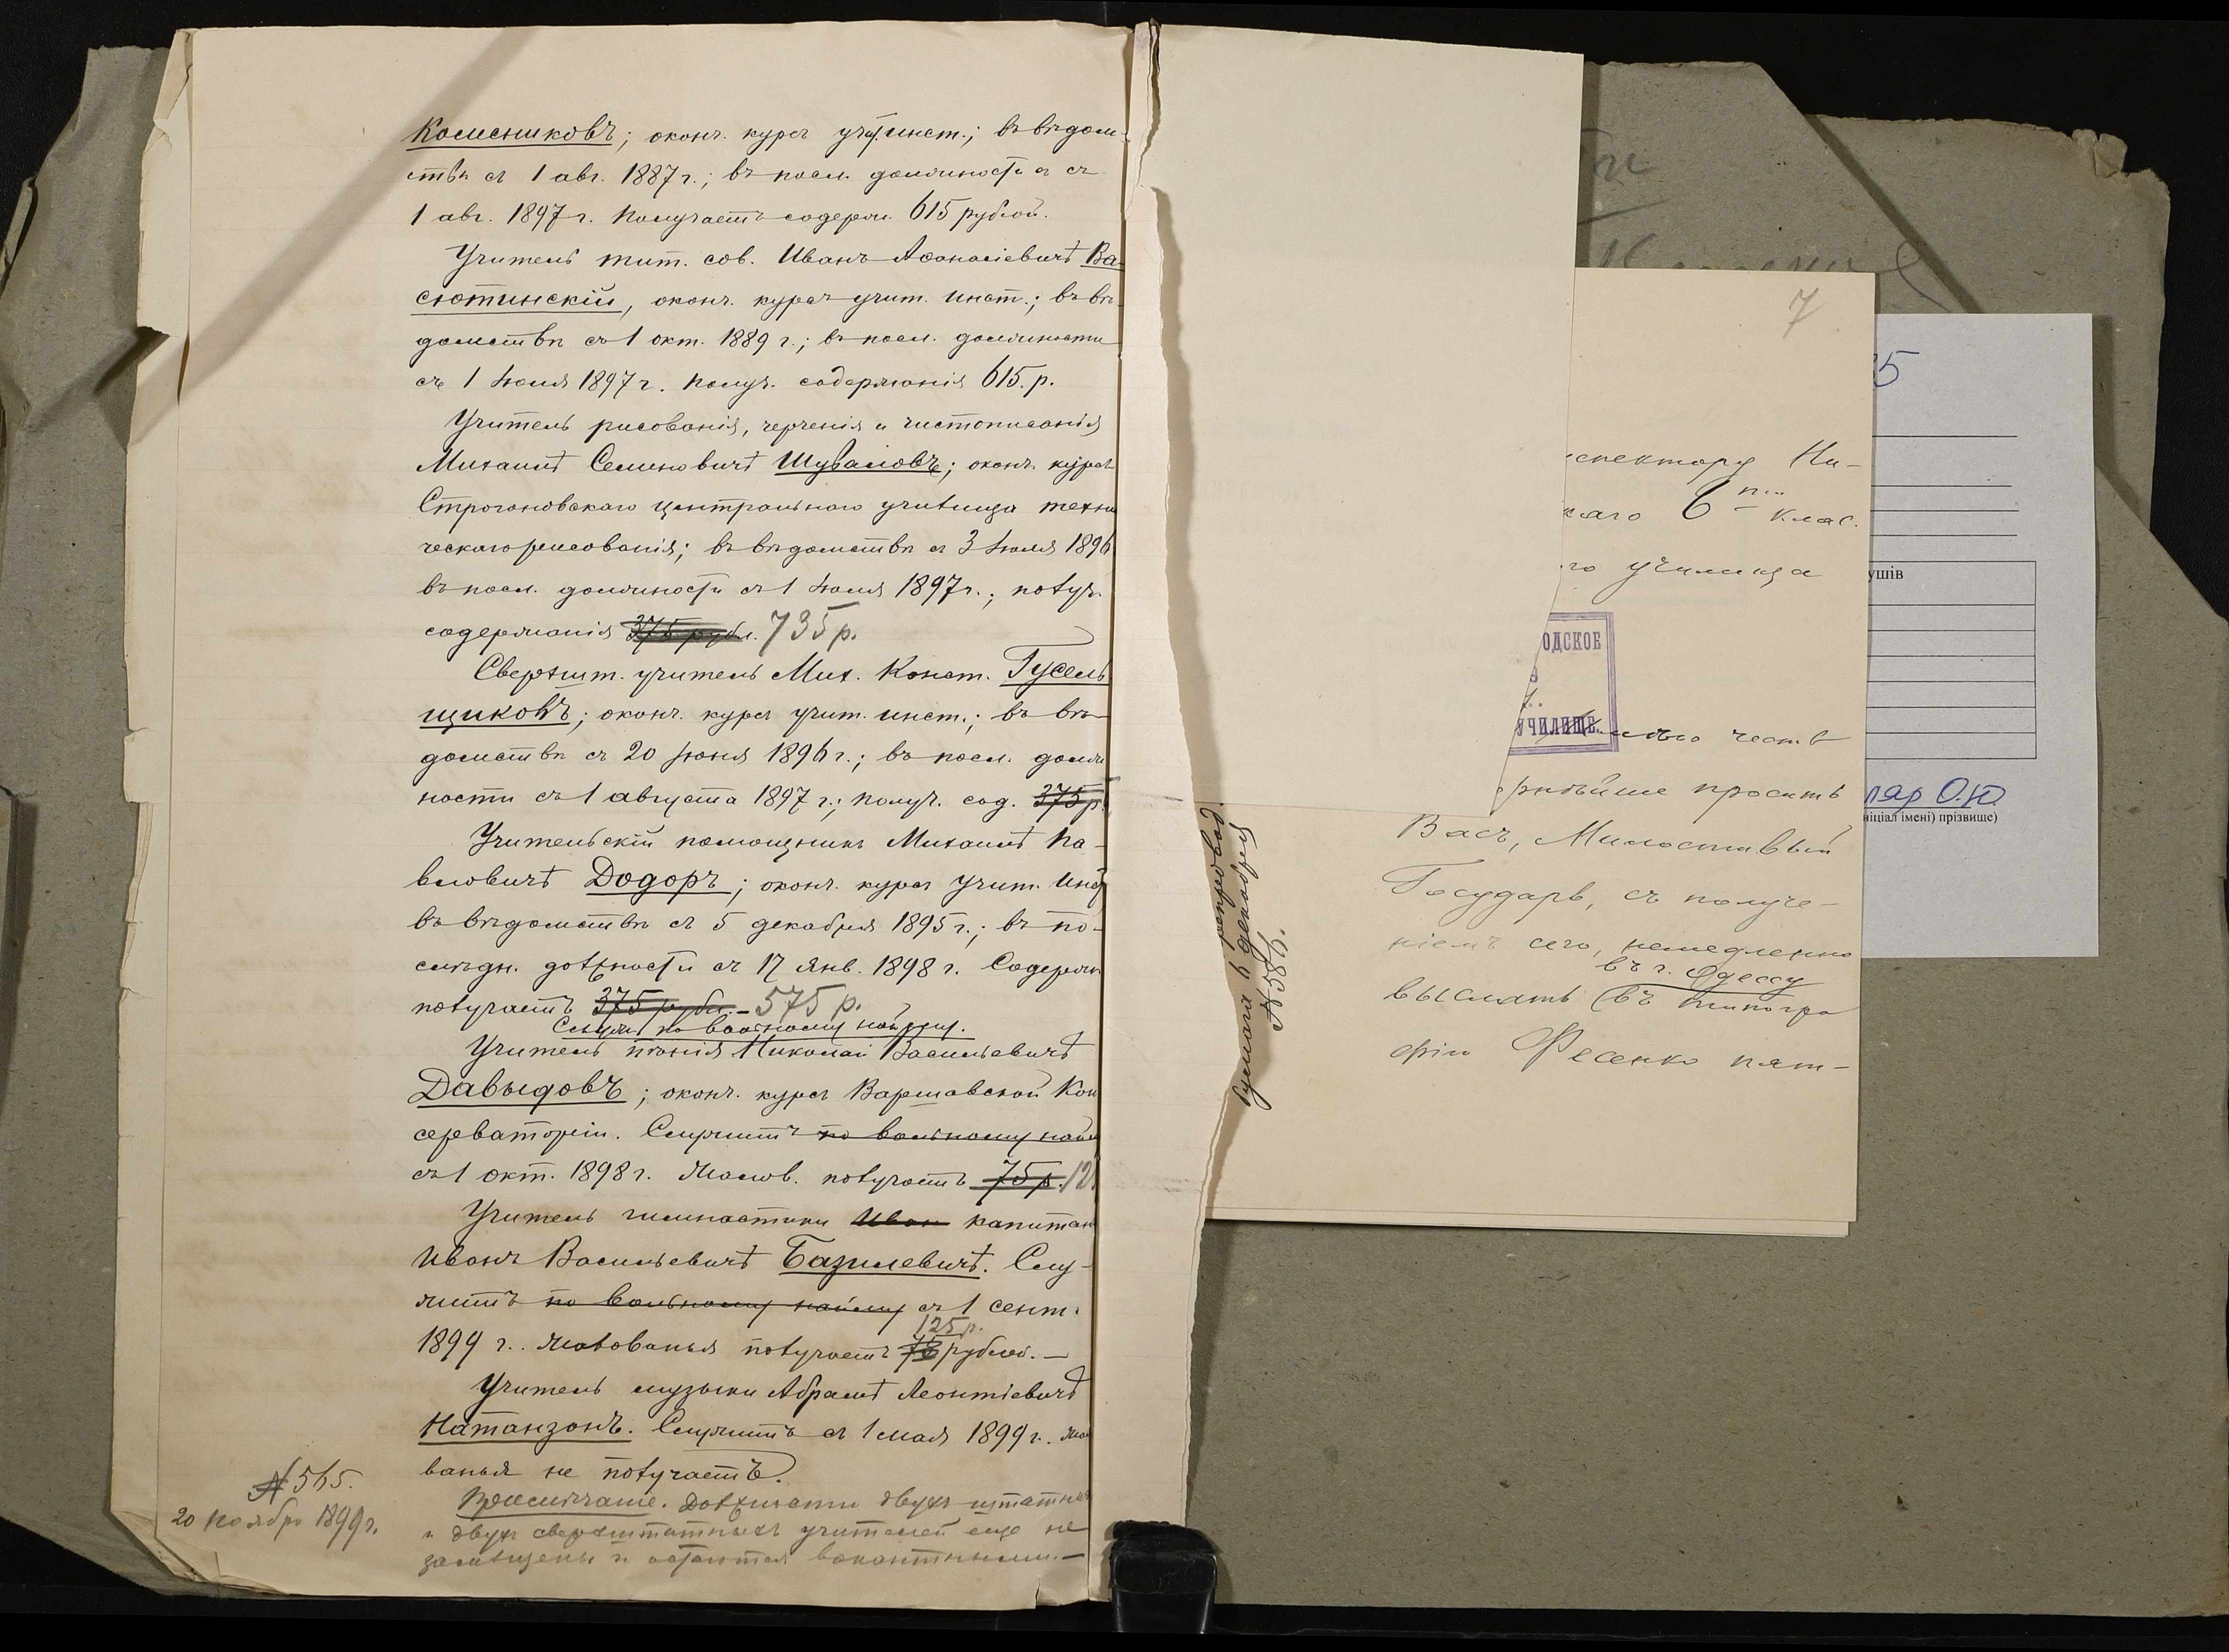 Колесниковъ; оконч. курсъ учит. инст.; въ вѣдом-
ствѣ съ 1 авг. 1887 г.; въ посл. должности съ
1 авг. 1897 г. Получаетъ содерж. 615 рублей.
Учитель тит. сов. Иванъ Аѳанасіевичъ Ва-
сютинскій, оконч. курсъ учит. инст.; въ вѣ-
домствѣ съ 1 окт. 1889 г.; въ посл. должности
съ 1 Іюля 1897 г. Получ. содержанія 615 р.
Учитель рисованія, черченія и чистописанія
Михаилъ Семеновичъ Шуваловъ; оконч. курсъ
Строгановскаго центральнаго училища техни
ческаго рисованія; въ вѣдомствѣ съ 3 Іюля 1896
въ посл. должности съ 1 Іюля 1897 г.; получ.
содержанія 375 рубл. 735 р.
Сверхшт. учитель Мих. Конст. Гусель
щиковъ; оконч. курсъ учит. инст.; въ вѣ-
домствѣ съ 20 Іюня 1896 г.; въ посл. долж
ности съ 1 августа 1897 г.; получ. сод. 375 р
Учительскій помощникъ Михаилъ Па-
вловичъ Додоръ; оконч. курсъ учит. инст
въ вѣдомствѣ съ 5 декабря 1895 г.; въ по-
слѣдн. должности съ 17 Янв. 1898 г. Содерж
получаетъ 375 рубл. - 575 р.
Служатъ по вольному найму.
Учитель пѣнія Николай Васильевичъ
Давыдовъ; оконч. курсъ Варшавской Кон
серваторіи. Служитъ по вольному найму
съ 1 окт. 1898 г. Жалов. получаетъ 75 р. 12
Учитель гимнастики Иван капитан
Иванъ Васильевичъ Базилевичъ. Слу-
житъ по вольному найму съ 1 сент.
125 р.
1899 г. Жалованья получаетъ 75 рублей. —
Учитель музыки Абрамъ Леонтіевичъ
Натанзонъ. Служитъ съ 1 мая 1899 г. Жало
ванья не получаетъ.
Примѣчаніе. Должности двухъ штатных
и двухъ сверхштатныхъ учителей еще не
замѣщены и остаются вакантными. —
№ 565.
20 ноября 1899 г.
6 декабря
№ 586.
7
спектору Ни-
каго 6 клас.
го училища
ОДСКОЕ
УЧИЛИЩЕ.
честь
рнѣйше просить
Васъ, Милостивый
Государь, съ получе-
ніемъ сего, немедленно
въ г. Одессу
выслать (въ типогра
фію Фесенко пят-
5
ушів
ляр О.Ю.
ініціал імені) прізвище)